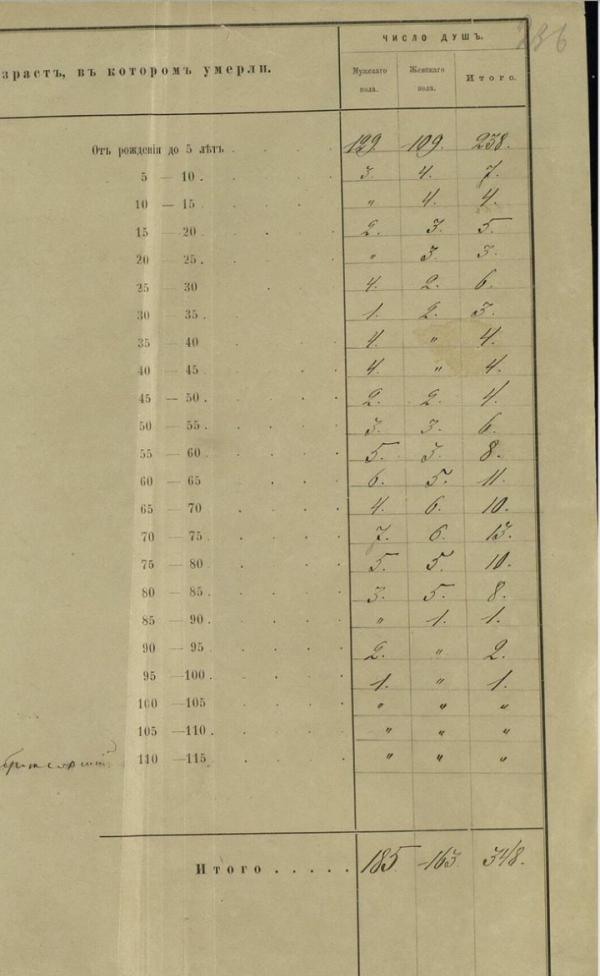 ЧИСЛО ДУШЪ.
зрастъ, въ которомъ умерли.
Мужскаго пола. Женскаго пола. Итого.
Отъ рожденія до 5 лѣтъ . . . . 129. 109. 238.
5 — 10 . . . . . 3. 4. 7.
10 — 15 . . . . „ 4. 4.
15 — 20 . . . . 2. 3. 5.
20 — 25 . . . . . „ 3. 3.
25 — 30 . . . . 4. 2. 6.
30 — 35 . . . . . 1. 2. 3.
35 — 40 . . . . 4. „ 4.
40 — 45 . . . . . 4. „ 4.
45 — 50 . . . . . 2. 2. 4.
50 — 55 . . . . . 3. 3. 6.
55 — 60 . . . . . 5. 3. 8.
60 — 65 . . . . 6. 5. 11.
65 — 70 . . . . 4. 6. 10.
70 — 75 . . . . . 7. 6. 13.
75 — 80 . . . . 5. 5. 10.
80 — 85 . . . . . 3. 5. 8.
85 — 90 . . . . . „ 1. 1.
90 — 95 . . . . 2. „ 2.
95 — 100 . . . . . 1. „ 1.
100 — 105 . . . . „ „ „
105 — 110 . . . . . „ „ „
110 — 115 . . . . „ „ „
Итого . . . . . 185. 163. 348.